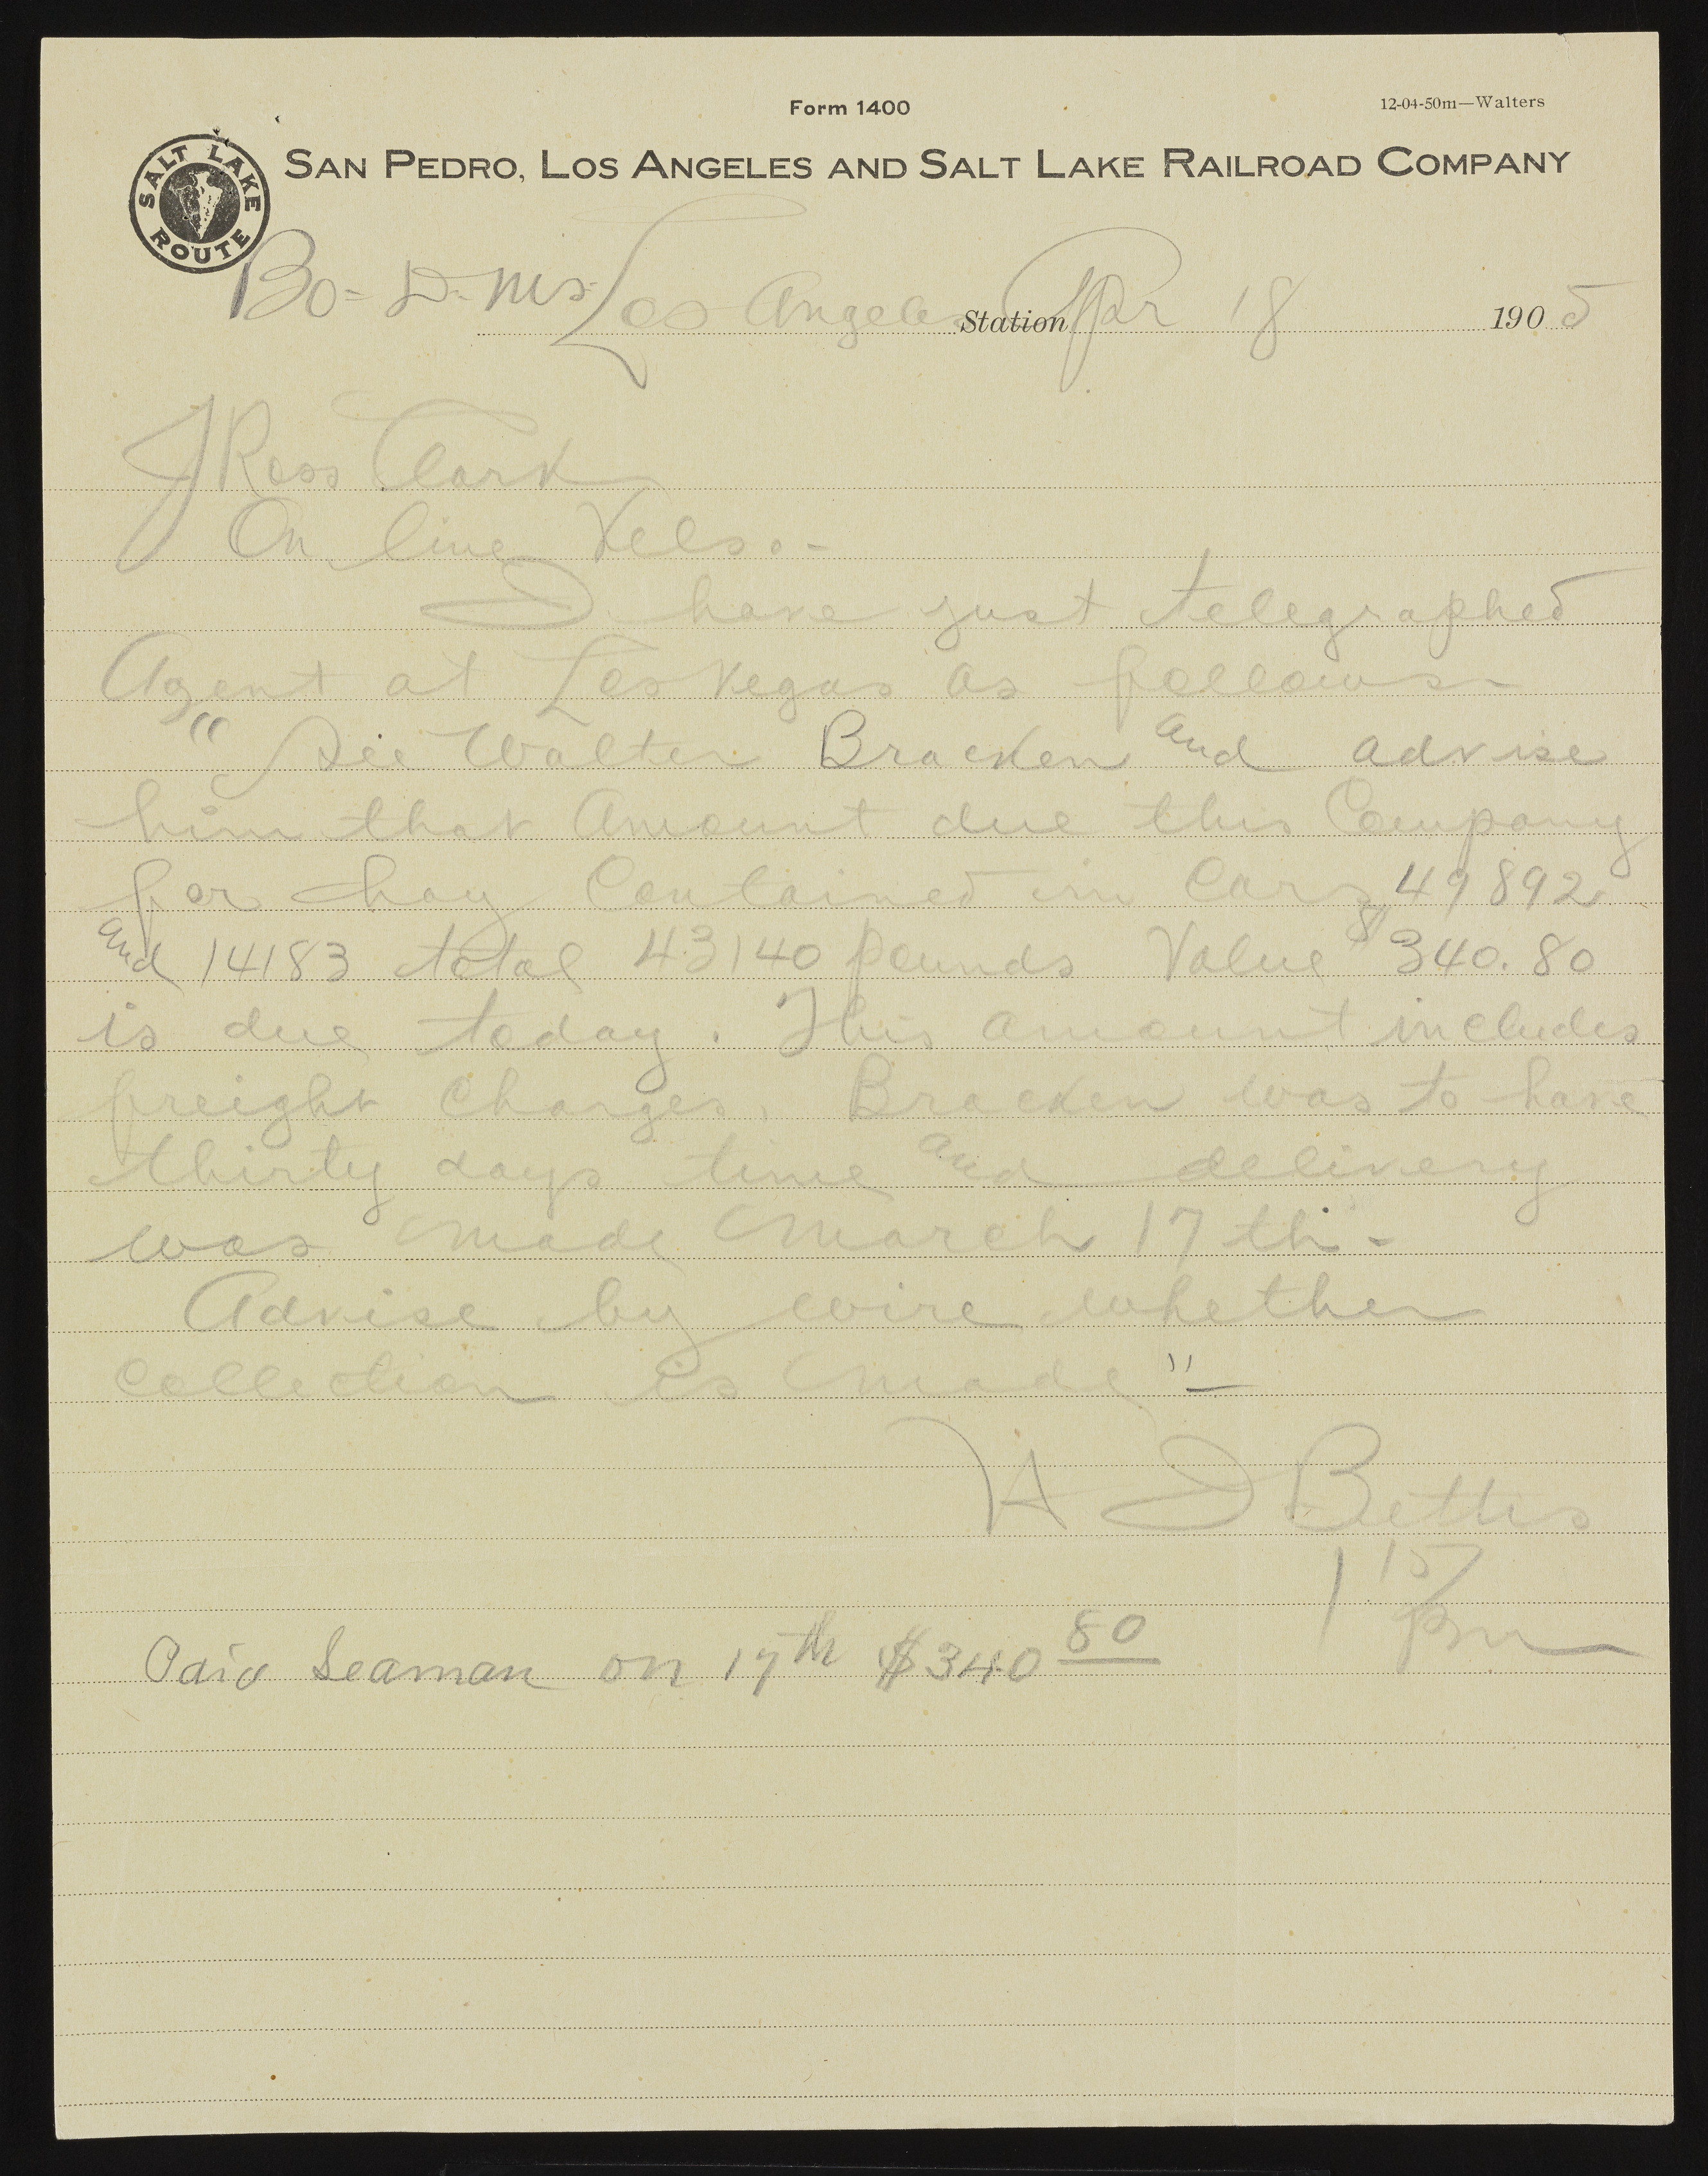 Form 1400
12-04-50m—Walters
SALT LAKE ROUTE
SAN PEDRO, LOS ANGELES AND SALT LAKE RAILROAD COMPANY
Bo- D- Ms- Los Angeles Station Apr 18 1905
J Ross Clark
On line Vegas.-
I have just telegraphed
Agent at Las Vegas as follows-
"See Walter Bracken and advise
him that amount due this Company
for hay Contained in Cars 49892
and 14183 total 43140 pounds Value $340.80
is due today. This amount includes
freight Charges. Bracken was to have
thirty days time and delivery
was made March 17th-
Advise by wire whether
Collection is made"-
H I Bettis
1 15 pm
Paid Seaman on 17th $340 80